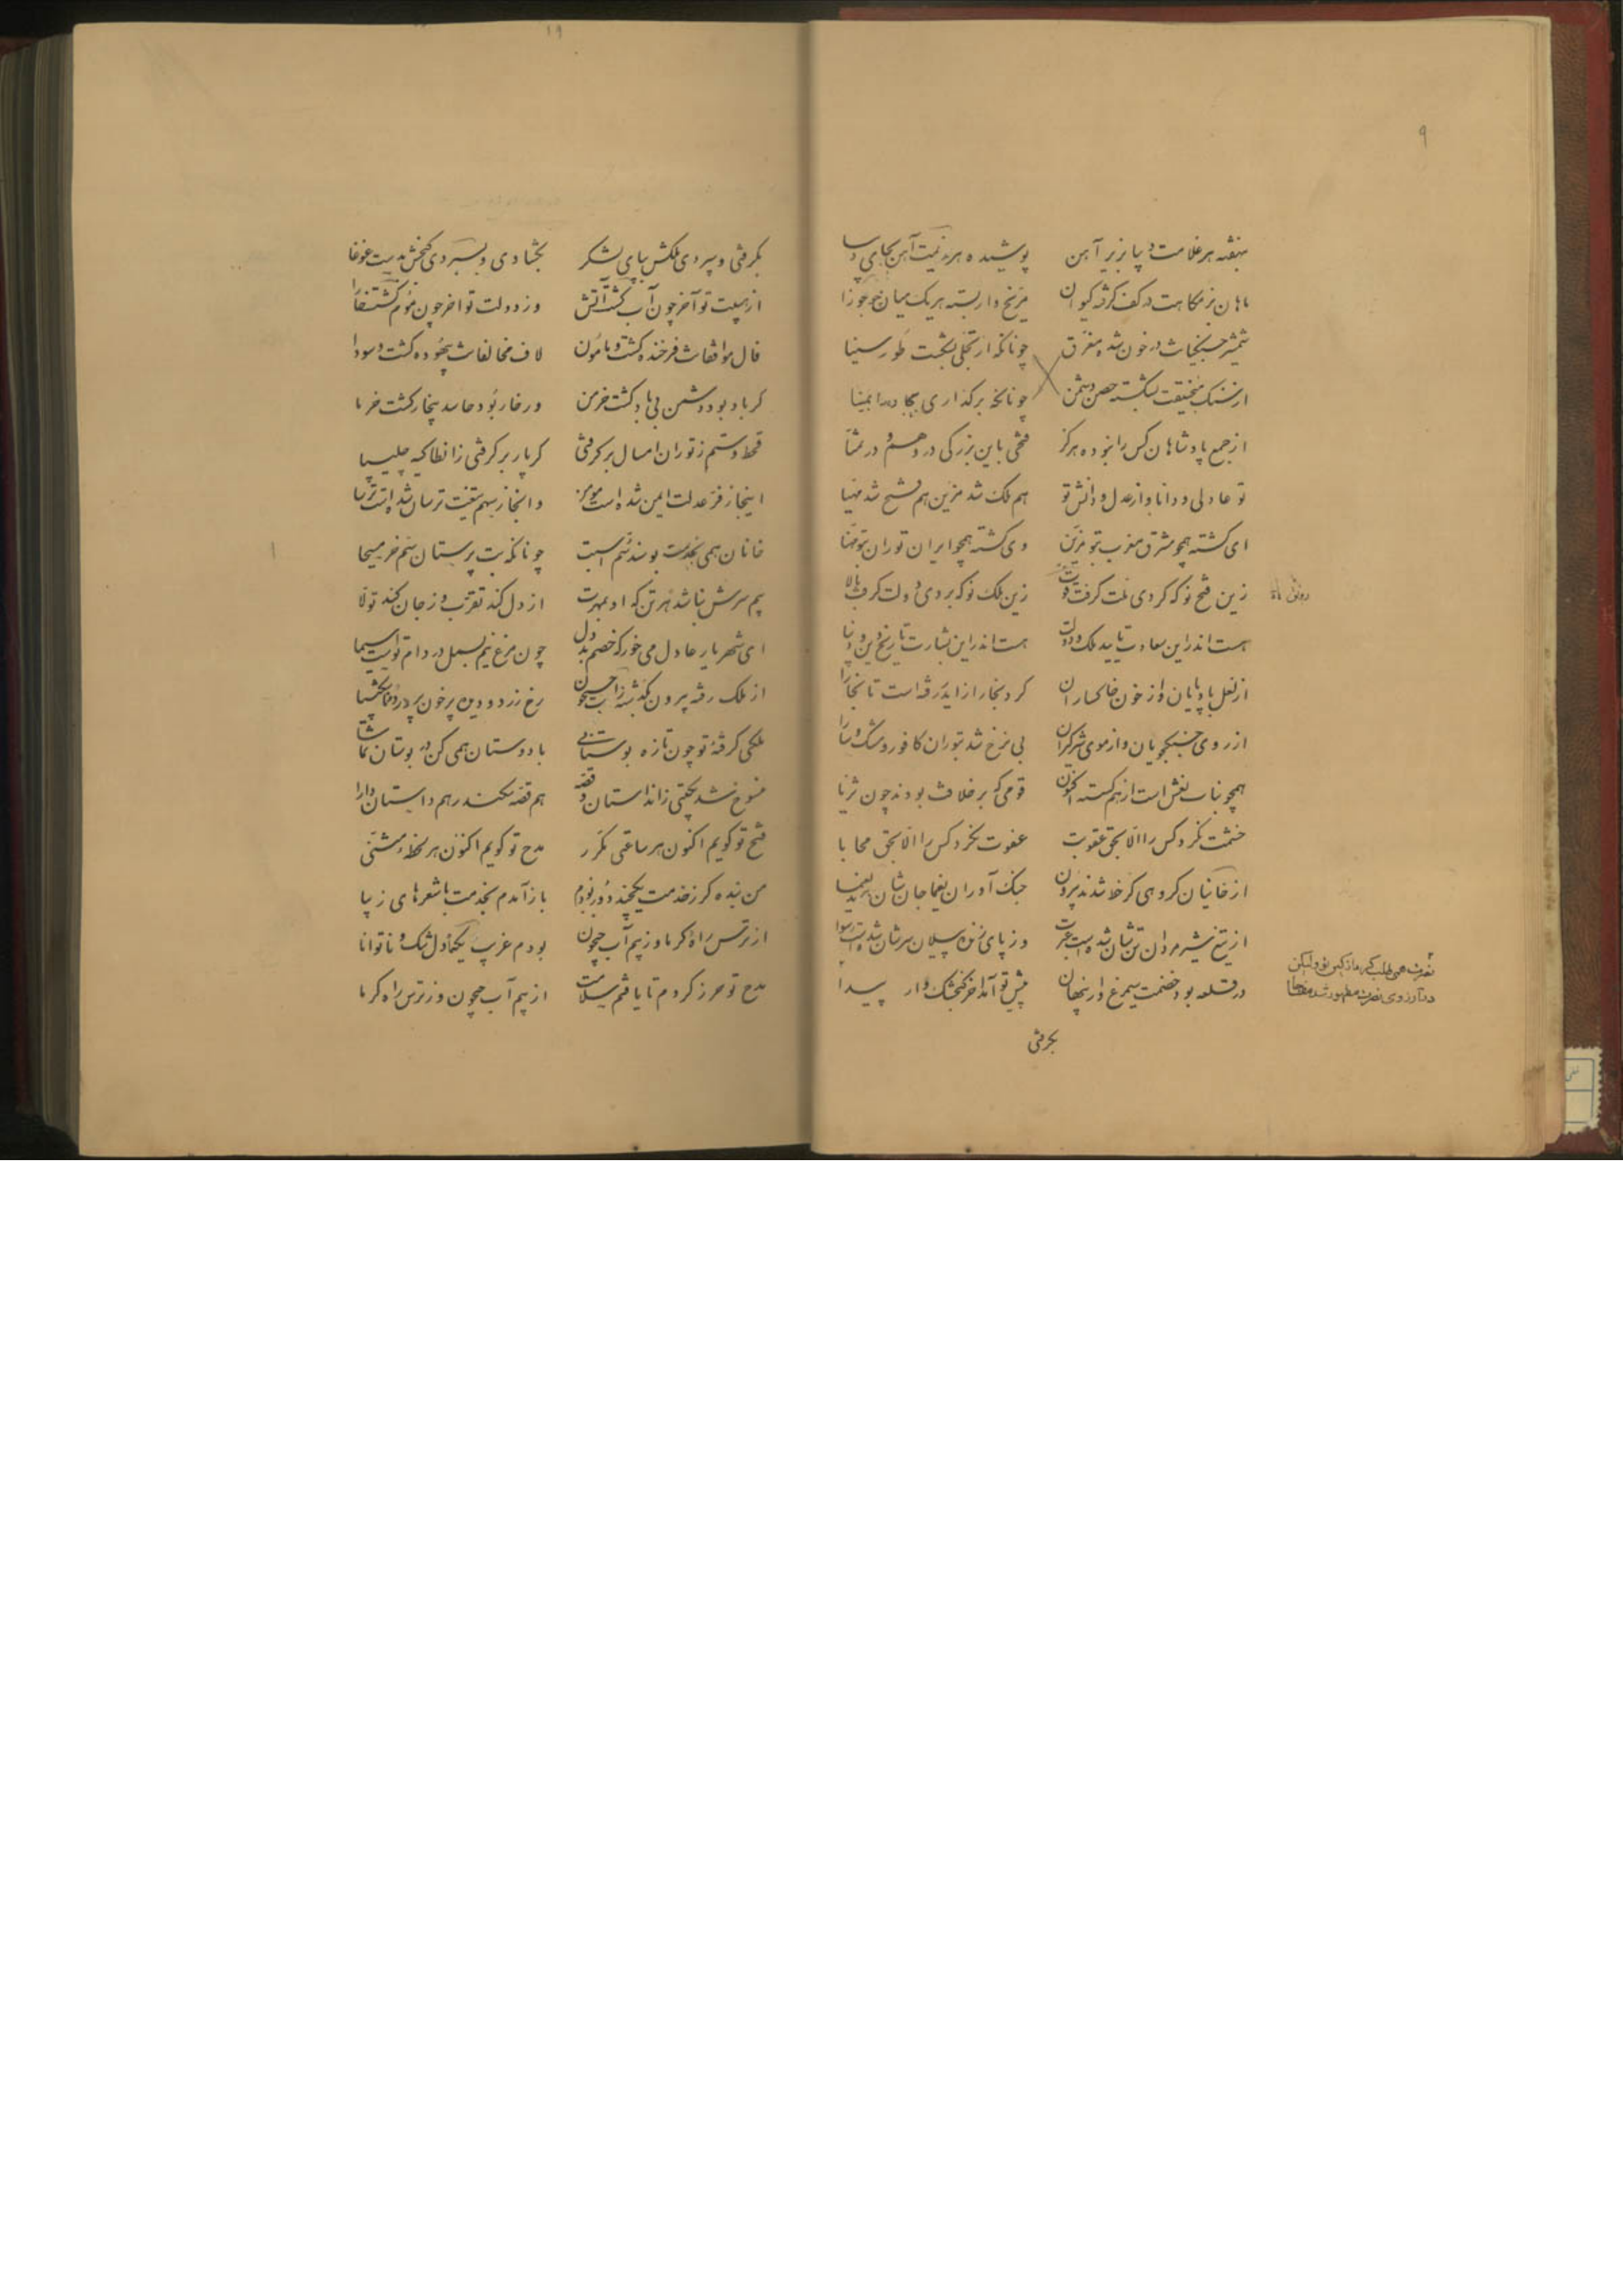 ۹
نهفته هر غلامت دیبا بزیر آهن پوشیده هر ندیمت آهن بجای دیبا
ماهان بزمکاهت در کف کرفته کیوان مریخ وار بسته هر یک میان چو جوزا
شمشیر جنکیانت در خون شده مغرق چونانکه از تجلی بشکست طور سینا
از سنک منجنیقت بشکسته حصن دشمن چونانکه برکذاری بیجاده را بمینا
از جمع پادشاهان کس را نبوده هرکز فتحی باین بزرکی در وهم و در تمنا
تو عادلی و دانا و از عدل و دانش تو هم ملک شد مزین هم فتح شد مهنا
ای کشته همچو مشرق مغرب بتو مزین وی کشته همچو ایران توران بتو مهنا
زین فتح نو که کردی ملت کرفت قوت زین ملک نو که بردی دولت کرفت بالا
هست اندر این سعادت تایید ملک و دولت هست اندر این بشارت تاریخ دین و دنیا
از نعل بادپایان و از خون خاکساران کرد و بخار از ایدر رفته است تا بخارا
از روی جنکجویان و از موی سرکشان بی نرخ شد بتوران کافور و مشک سارا
همچون بنات نعش است از هم کسسته اکنون قومی که بر خلافت بودند چون ثریا
خشمت نکرد کس را الا بحق عقوبت عفوت نکرد کس را الا بحق محابا
از خانیان کروهی کز خط شدند بیرون جنک آوران یغما جان شان بیغما
از تیغ شیر مردان تن شان شده است عبرت وز پای ژنده پیلان سرشان شده است رسوا
در قلعه بود خصمت سیمرغ وار پنهان پیش تو آمد آخر کنجشک وار پیدا
نصرت همی طلب کرد ماه
بکرفتی
بکرفتی و سپردی ملکش بپای لشکر بکشادی و بسپردی کنجش بدست غوغا
از هیبت تو آخر چون آب کشت آتش وز دولت تو آخر چون موم کشت خارا
فال موافقانت فرخنده کشت و مأمون لاف مخالفانت بیهوده کشت و سودا
کر باد بود دشمن بی باد کشت خرمن ور خار بود حاسد بیخار کشت خرما
قحط و ستم ز توران امسال برکرفتی کر پار برکرفتی ز انطاکیه چلیپا
اینجا ز فر عدلت ایمن شده است مؤمن و انجا ز سهم تیغت ترسان شد است ترسا
خانان همی بخدمت بوسند سم اسبت چونانکه بت پرستان سم خر مسیحا
بیم سرش نباشد هر تن که او بمهرت از دل کند تقرب وز جان کند تولا
ای شهریار عادل می خور که خصم بد دل چون مرغ نیم بسمل در دام تو است
از ملک رفته بیرون بکذشته ز آب جیحون رخ زرد و دیده پر خون پر درد
ملکی کرفتهٔ تو چون تازه بوستانی با دوستان همی کن در بوستان تماشا
منسوخ شد بکیتی زان داستان و قصه هم قصه سکندر هم داستان دارا
فتح تو کویم اکنون هر ساعتی مکرر مدح تو کویم اکنون هر لحظهٔ مثنی
من بنده کر ز خدمت یکچند دور بودم باز آمدم بخدمت با شعرهای زیبا
از ترس راه کرما وز بیم آب جیحون بودم غریب یکتا دل تنک و ناتوانا
مدح تو حرز کردم تا یافتم سلامت از بیم آب جیحون وز ترس راه کرما